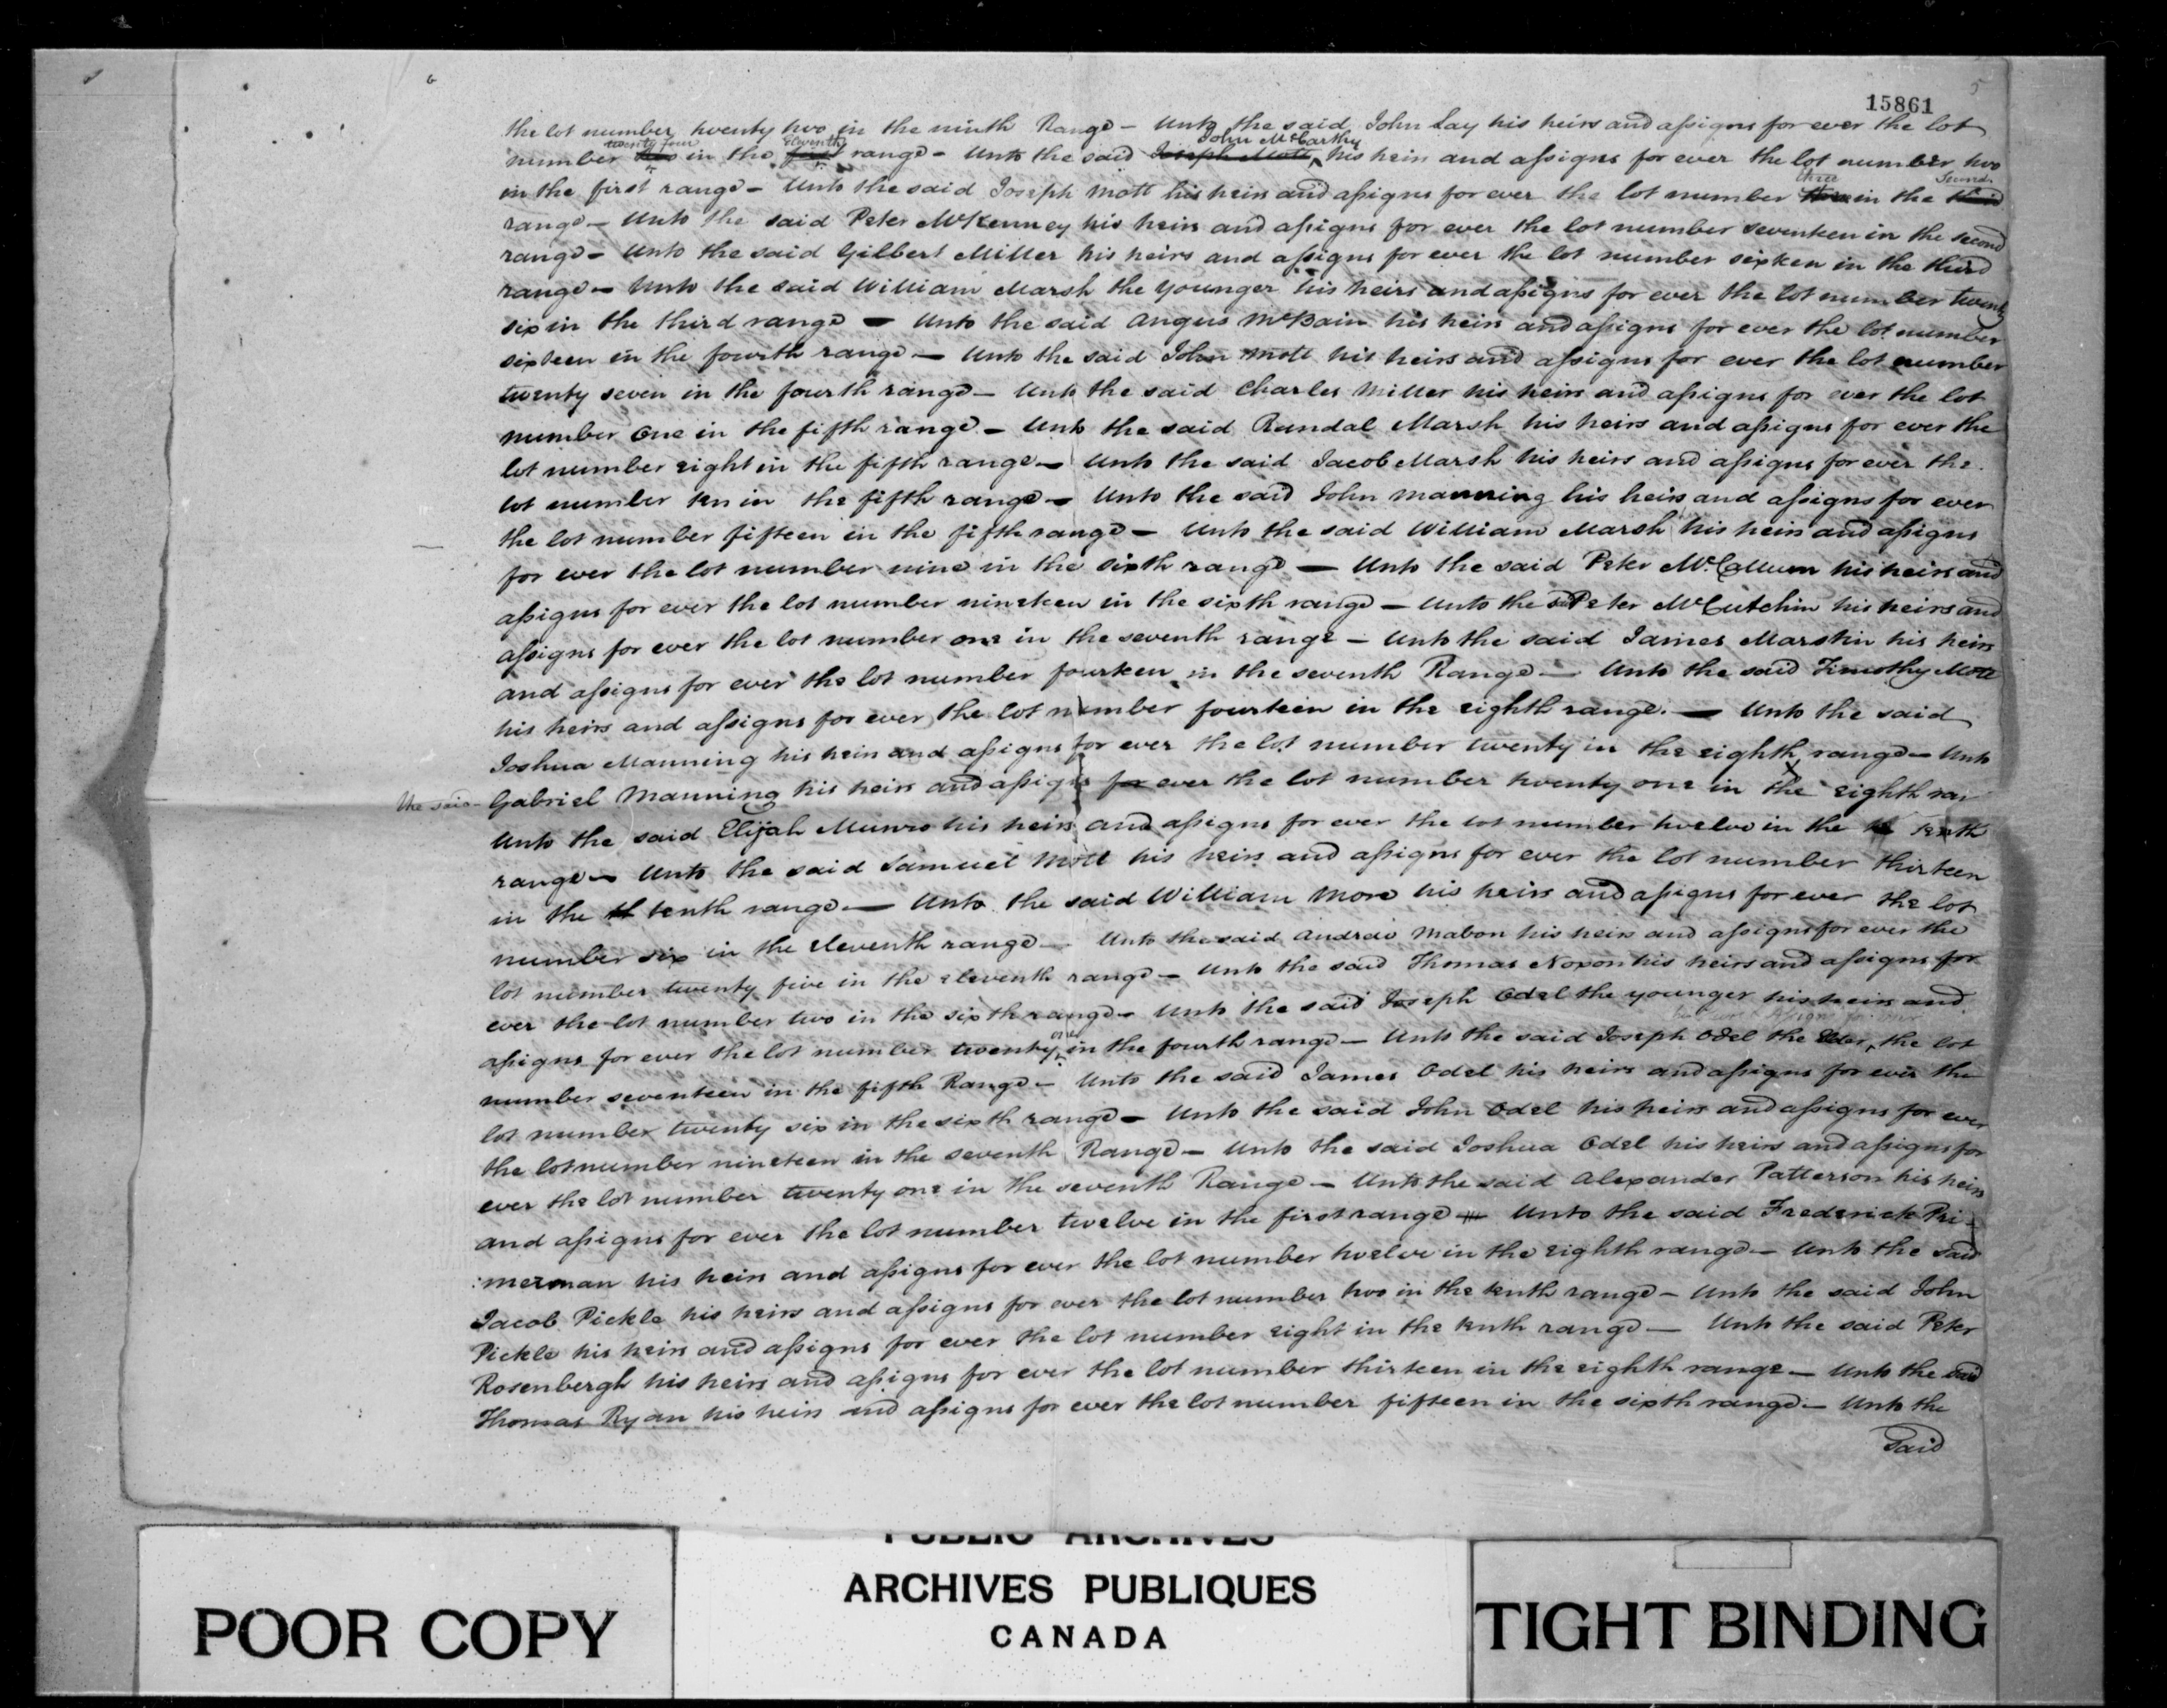 15861
5
the lot number twenty two in the ninth Range - Unto the said John Lay his heirs and assigns for ever the lot
twenty four Eleventh John McCarthy
number two in the first range - Unto the said Joseph Mott his heirs and assigns for ever the lot number two
three Second
in the first range - Unto the said Joseph Mott his heirs and assigns for ever the lot number three in the third
range - Unto the said Peter McKenney his heirs and assigns for ever the lot number seventeen in the second
range - Unto the said Gilbert Miller his heirs and assigns for ever the lot number sixteen in the third
range - Unto the said William Marsh the younger his heirs and assigns for ever the lot number twenty
six in the third range - Unto the said Angus McBain his heirs and assigns for ever the lot number
sixteen in the fourth range - Unto the said John Mott his heirs and assigns for ever the lot number
twenty seven in the fourth range - Unto the said Charles Miller his heirs and assigns for ever the lot
number one in the fifth range - Unto the said Randal Marsh his heirs and assigns for ever the
lot number eight in the fifth range - Unto the said Jacob Marsh his heirs and assigns for ever the
lot number ten in the fifth range - Unto the said John Manning his heirs and assigns for ever
the lot number fifteen in the fifth range - Unto the said William Marsh his heirs and assigns
for ever the lot number nine in the sixth range - Unto the said Peter McCallum his heirs and
assigns for ever the lot number nineteen in the sixth range - Unto the sd Peter McCutchin his heirs and
assigns for ever the lot number one in the seventh range - Unto the said James Marstin his heirs
and assigns for ever the lot number fourteen in the seventh Range - Unto the said Timothy Mott
his heirs and assigns for ever the lot number fourteen in the eighth range. - Unto the said
Joshua Manning his heirs and assigns for ever the lot number twenty in the eighth range - Unto
the said - Gabriel Manning his heirs and assigns for ever the lot number twenty one in the eighth ran
Unto the said Elijah Munro his heirs and assigns for ever the lot number twelve in the tenth
range - Unto the said Samuel Mott his heirs and assigns for ever the lot number thirteen
in the tenth range - Unto the said William More his heirs and assigns for ever the lot
number six in the eleventh range - Unto the said Andrew Mabon his heirs and assigns for ever the
lot number twenty five in the eleventh range - Unto the said Thomas Noxon his heirs and assigns for
ever the lot number two in the sixth range - Unto the said Joseph Odel the younger his heirs and
one his heirs & Assigns for ever
assigns for ever the lot number twenty in the fourth range - Unto the said Joseph Odel the Elder, the lot
number seventeen in the fifth Range - Unto the said James Odel his heirs and assigns for ever the
lot number twenty six in the sixth range - Unto the said John Odel his heirs and assigns for ever
the lot number nineteen in the seventh Range - Unto the said Joshua Odel his heirs and assigns for
ever the lot number twenty one in the seventh Range - Unto the said Alexander Patterson his heirs
and assigns for ever the lot number twelve in the first range - Unto the said Frederick Pri-
:merman his heirs and assigns for ever the lot number twelve in the eighth range - Unto the said
Jacob Pickle his heirs and assigns for ever the lot number two in the tenth range - Unto the said John
Pickle his heirs and assigns for ever the lot number eight in the tenth range - Unto the said Peter
Rosenbergh his heirs and assigns for ever the lot number thirteen in the eighth range - Unto the said
Thomas Ryan his heirs and assigns for ever the lot number fifteen in the sixth range - Unto the
Said
POOR COPY
PUBLIC ARCHIVES
ARCHIVES PUBLIQUES
CANADA
TIGHT BINDING